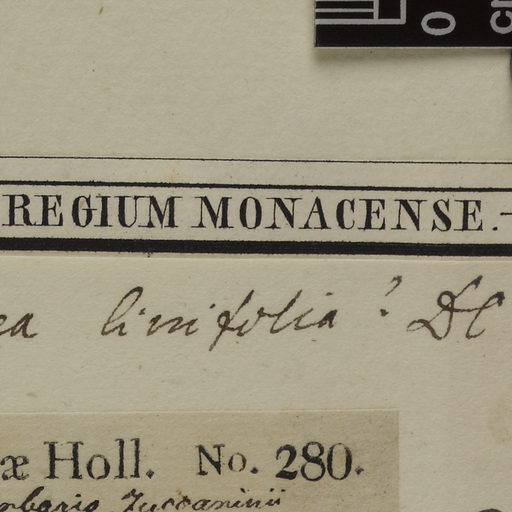 0 cm
REGIUM MONACENSE.-
ea linifolia? DC
æ Holl. No. 280.
erbario Zuccarinii